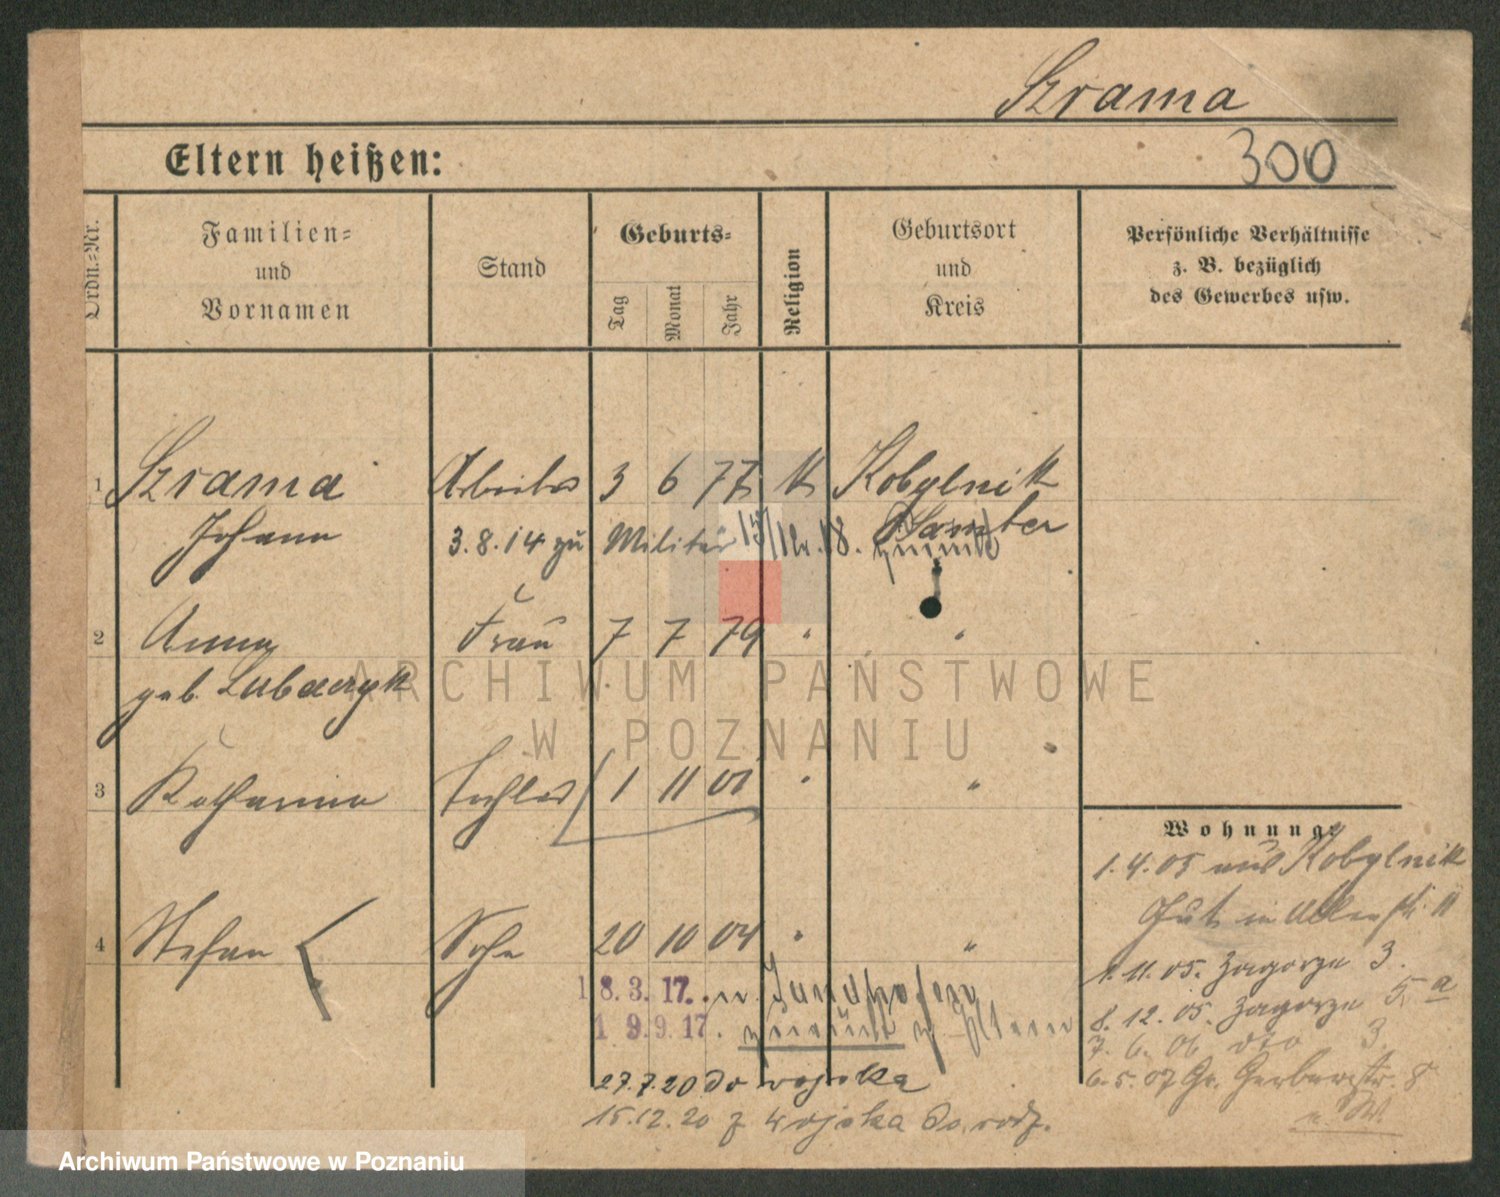 Szrama
300
Eltern heißen:
Ordn.-Nr.
Familien-
und
Vornamen
Stand
Geburts-
Tag
Monat
Jahr
Religion
Geburtsort
und
Kreis
Persönliche Verhältnisse
z. B. bezüglich
des Gewerbes usw.
1 Szrama Arbeiter 3 6 77 k Kobylnik
Johann 3.8.14 zu Militär 18. Samter
2 Anna Frau 7 7 79 " "
geb.
3 Katharina Tochter 1 11 01 " "
4 Stefan Sohn 20 10 04 " "
18.3.17.
19.9.17. zurück z. Eltern
27.7.20 do wojska
15.12.20 z wojska do rodz.
Wohnung:
1.4.05 aus Kobylnik
Gut in
1.11.05. Zagorze 3.
8.12.05. Zagorze 5a
7.6.06 dto 3.
6.5.07 Gr. Gerberstr. 8
ARCHIWUM PAŃSTWOWE
W POZNANIU
Archiwum Państwowe w Poznaniu